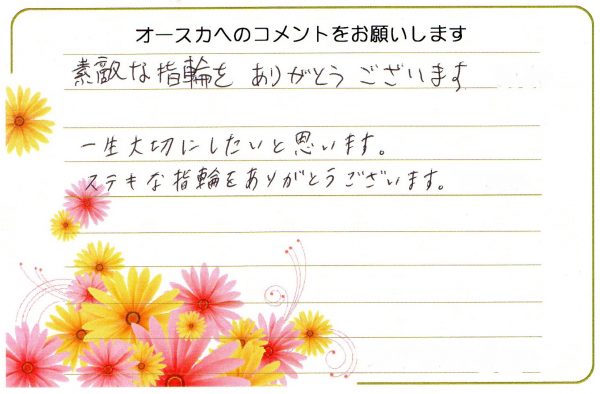 オースカへのコメントをお願いします
素敵な指輪を ありがとう ございます
一生大切にしたいと思います。
ステキな指輪をありがとうございます。